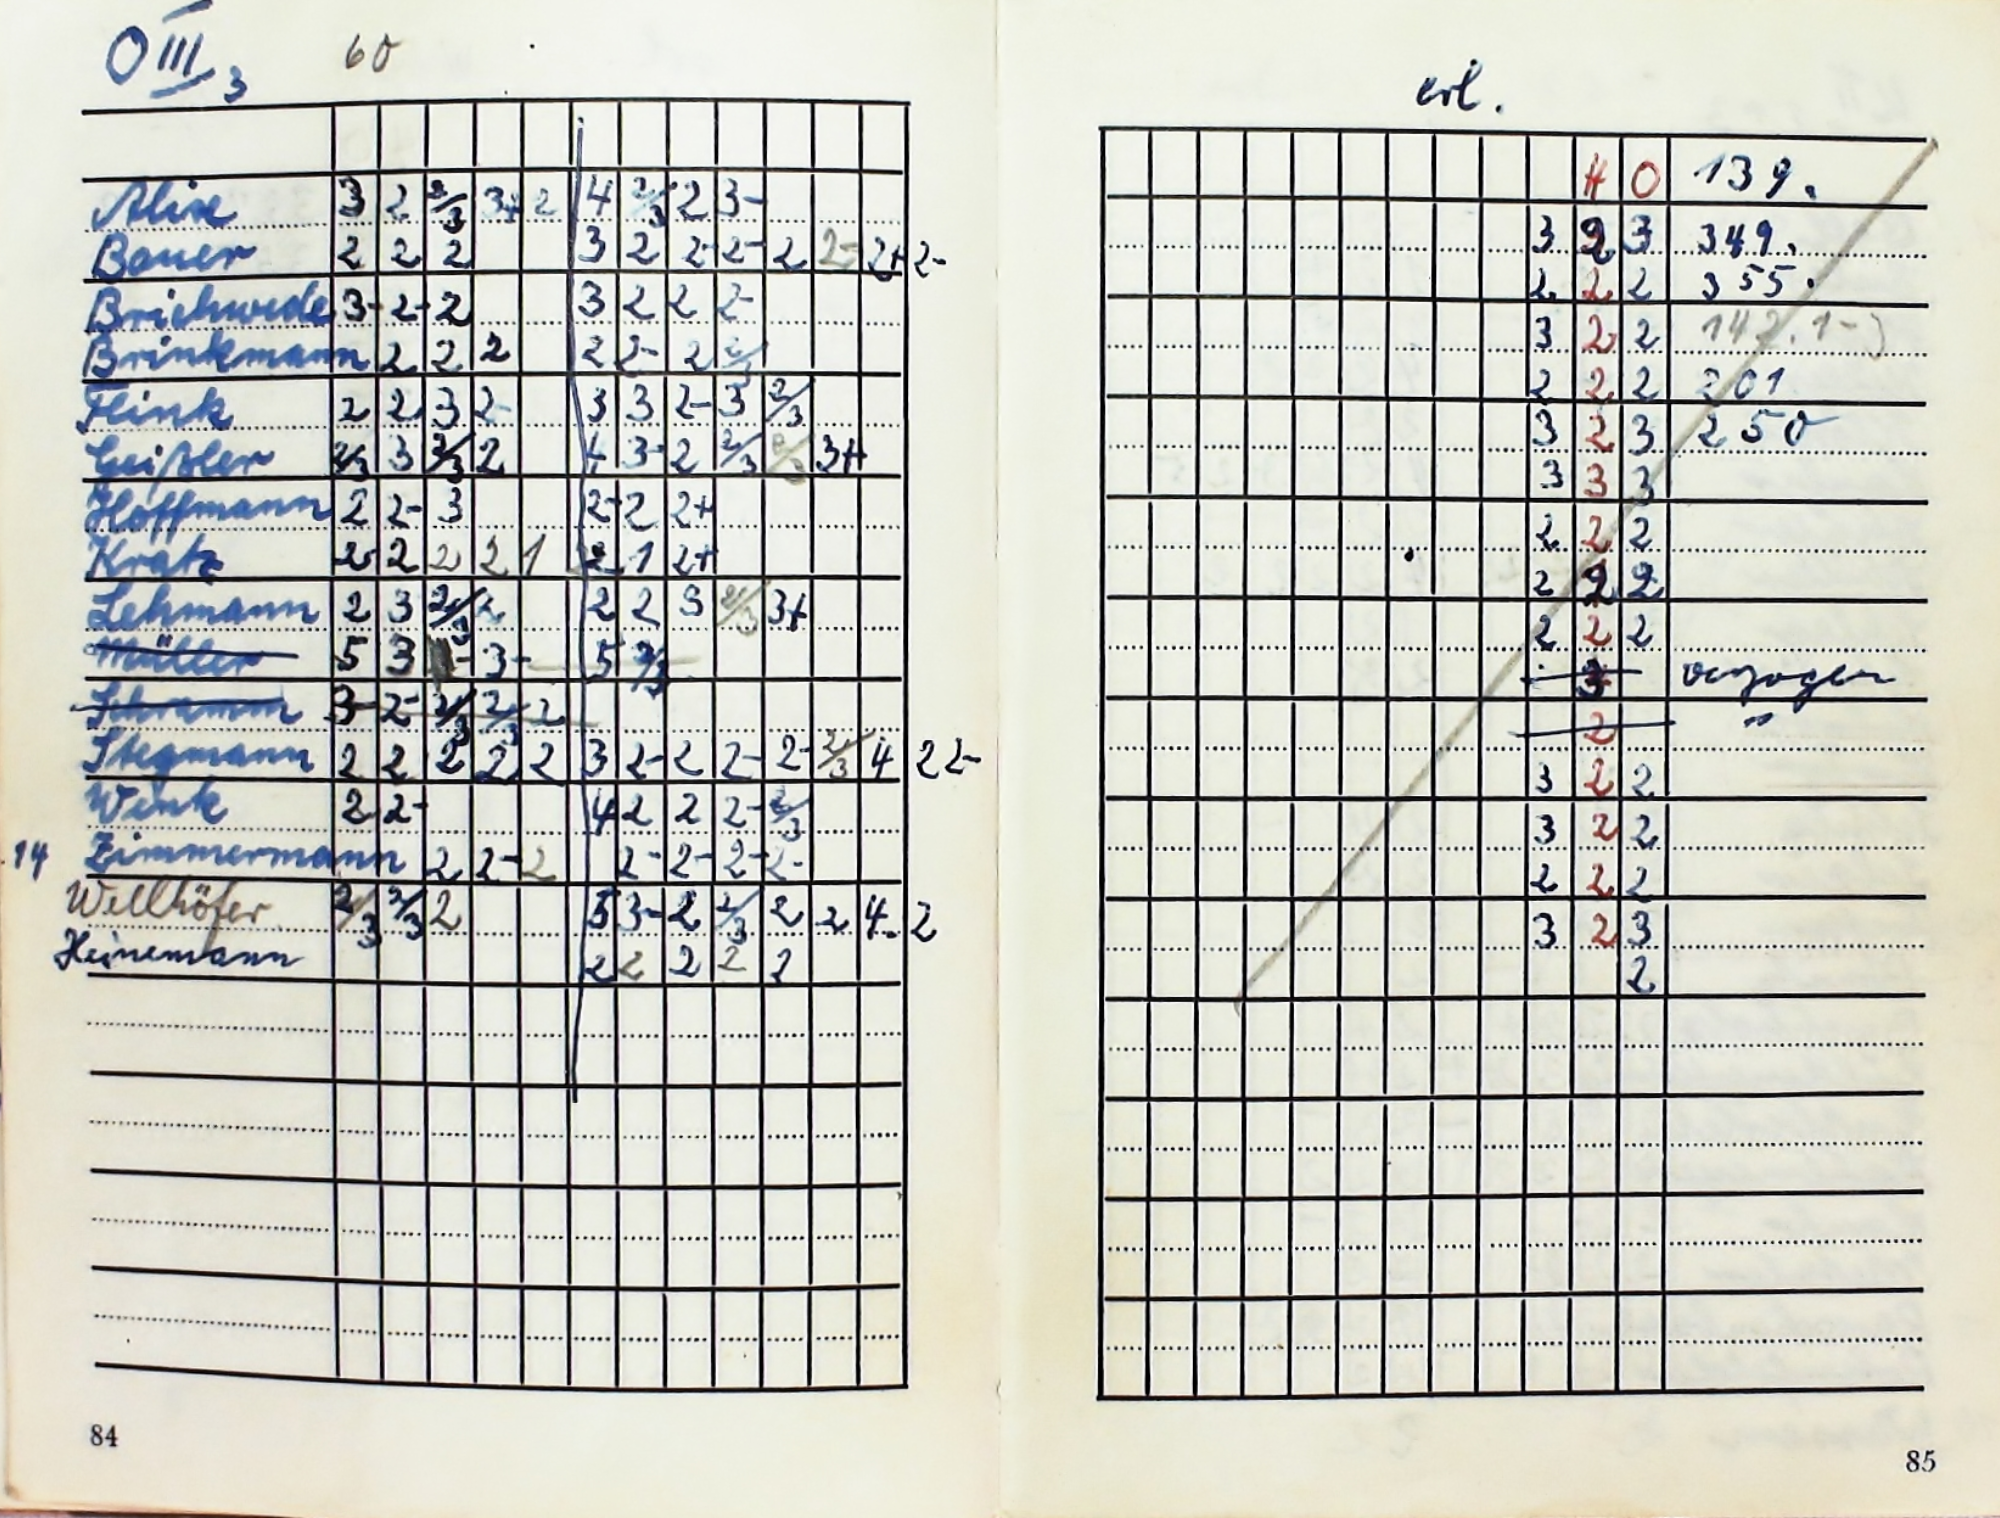 O III 3 60
Alixe 3 2 2/3 3+ 2 4 2/3 2 3-
Bauer 2 2 2 3 2 2- 2- 2 2- 2+ 2-
Brichwede 3- 2- 2 3 2 2 2-
Brinkmann 2 2 2 2 2- 2 2/3
Flink 2 2 3 2- 3 3 2- 3 2/3
Geißler 2/3 3 2/3 2 4 3- 2 2/3 2/3 3+
Hoffmann 2 2- 3 2- 2 2+
Kratz 2- 2 2 2 1 2 1 2+
Lehmann 2 3 2/3 2 2 2 3 2/3 3+
Müller 5 3 3- 5 2/3
Schramm 3- 2- 2/3 2/3 2
Stegmann 2 2 2 2 2 3 2- 2 2- 2- 2/3 4 2 2-
Wenk 2 2- 4 2 2 2- 2/3
14 Zimmermann 2 2- 2 2- 2- 2- 2-
Wellhöfer 2/3 2/3 2 5 3- 2 2/3 2 2 4. 2
Heinemann 2 2 2 2 2
84
erl.
H O 139.
3 2 3 349.
2 2 2 355.
3 2 2 142. 1-)
2 2 2 201
3 2 3 250
3 3 3
2 2 2
2 2 2
2 2 2
3 verzogen
2 "
3 2 2
3 2 2
2 2 2
3 2 3
2
85